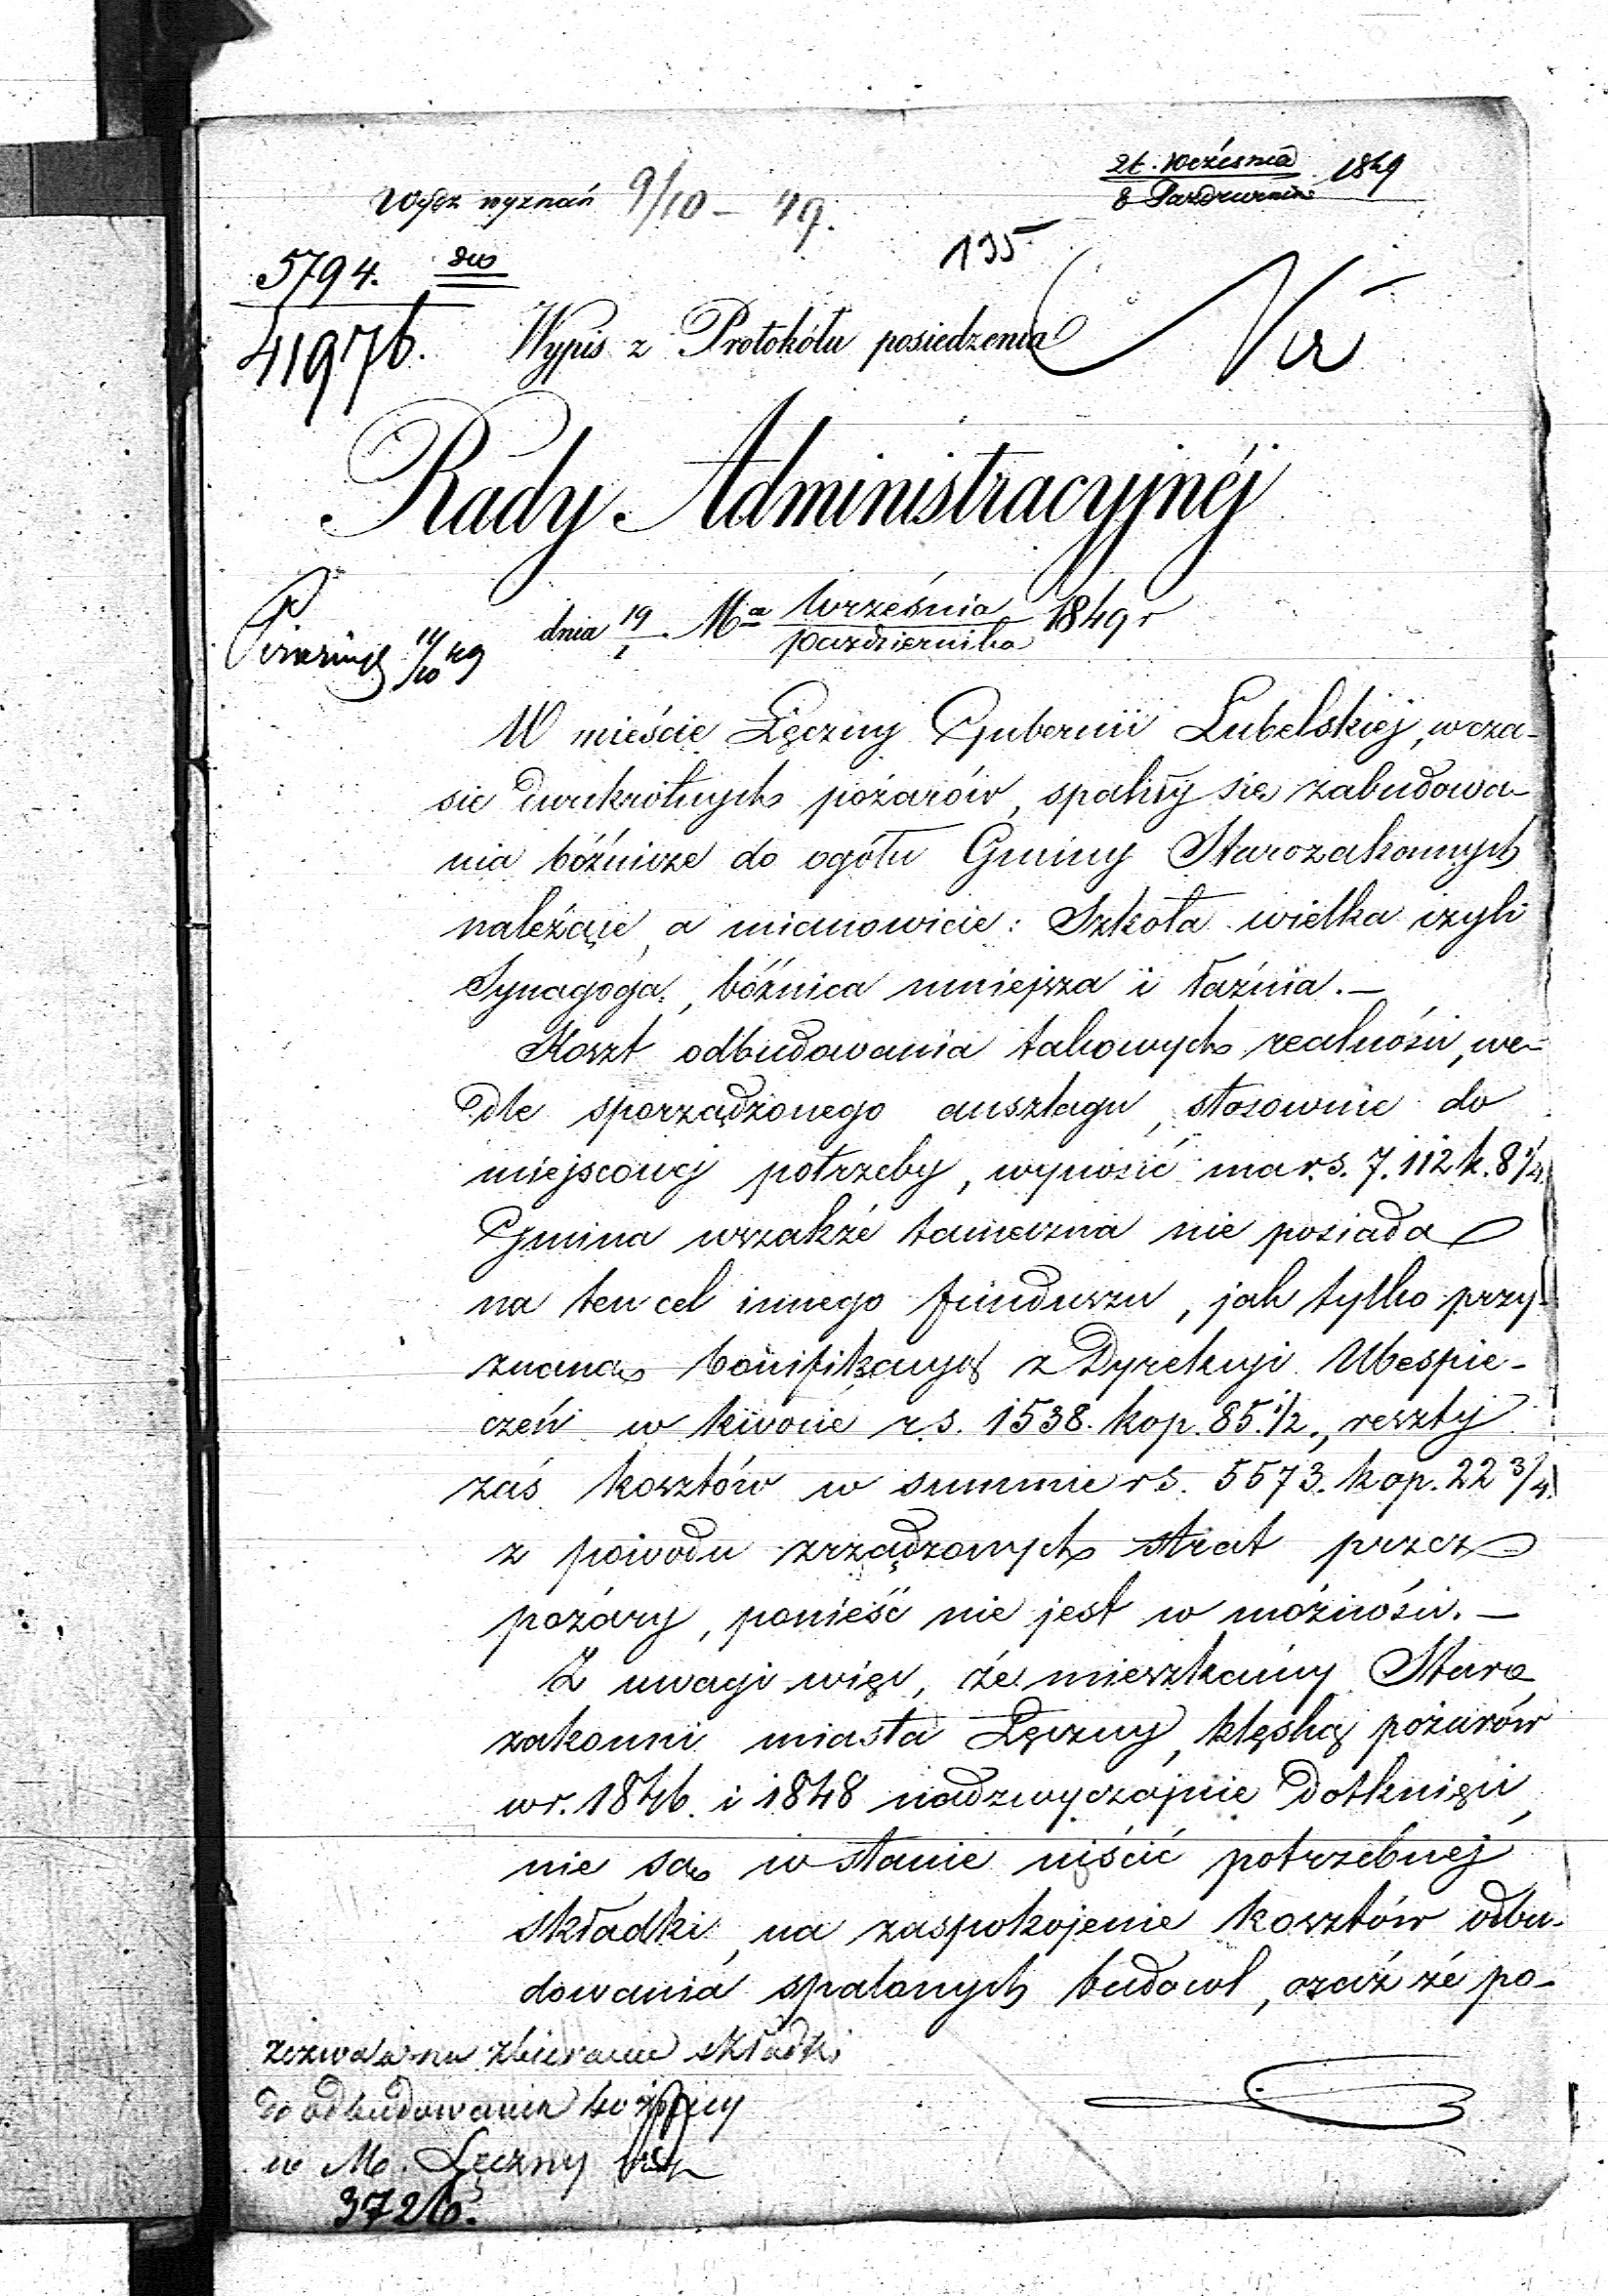 Wydz wyznań 9/10 – 49.
1849
Października
135
5794.
41976.
Wypis z Protokółu posiedzenia
Rady Administracyjnéj
dnia 19/1 Ma Września/października 1849 r
W mieście Łęczny Gubernii Lubelskiej, w cza-
sie dwukrotnych pożarów, spaliły się zabudowa-
nia bóżnicze do ogółu Gminy Starozakonnych
należące, a mianowicie: Szkoła wielka czyli
Synagoga, bóźnica mniejsza i łaźnia. —
Koszt odbudowania takowych realności, we-
dle sporządzonego anszlagu, stosownie do
miejscowej potrzeby, wynosić ma r.s. 7.112 k. 8 1/4.
Gmina wszakże tameczna nie posiada
na ten cel innego funduszu, jak tylko przy-
znaną bonifikacyą z Dyrekcyi Ubespie-
czeń w kwocie r.s. 1538. kop. 85 1/2., reszty
zaś kosztów w summie rs. 5573. kop. 22 3/4.
z powodu zrządzonych strat przez
pożary, ponieść nie jest w możności. —
Z uwagi więc, że mieszkańcy Staro
zakonni miasta Łęczny, klęską pożarów
w r. 1846 i 1848 nadzwyczajnie dotknięci,
nie są w stanie uiścić potrzebnej
składki, na zaspokojenie kosztów odbu-
dowania spalonych budowl, oraz że po-
zezwala na zbieranie składki
do odbudowania bożnicy
w M. Łęczny
3726.